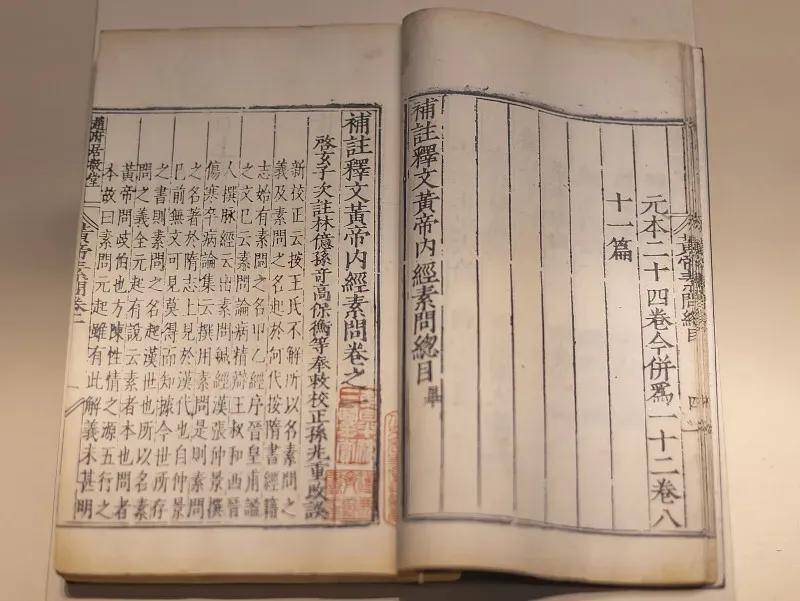 黃帝素問總目
四
元本二十四卷今併爲一十二卷八
十一篇
補註釋文黃帝內經素問總目 畢
補註釋文黃帝內經素問卷之
啓玄子次註林億孫奇高保衡等奉敕校正孫兆重改誤
新校正云按王氏不解所以名素問之
義及素問之名起於何代按隋書經籍
志始有素問之名甲乙經序晉皇甫謐
之文已云素問論病精辯王叔和西晉
人撰脉經云出素問鍼經漢張仲景撰
傷寒卒病論集云撰用素問是則素問
之名著於隋志上見於漢代也自仲景
已前無文可見莫得而知據今世所存
之書則素問之名起漢世也所以名素
問之義全元起有說云素者本也問者
黃帝問岐伯也方陳性情之源五行之
本故曰素問元起雖有此解義未甚明
趙府居敬堂
黃帝素問卷一